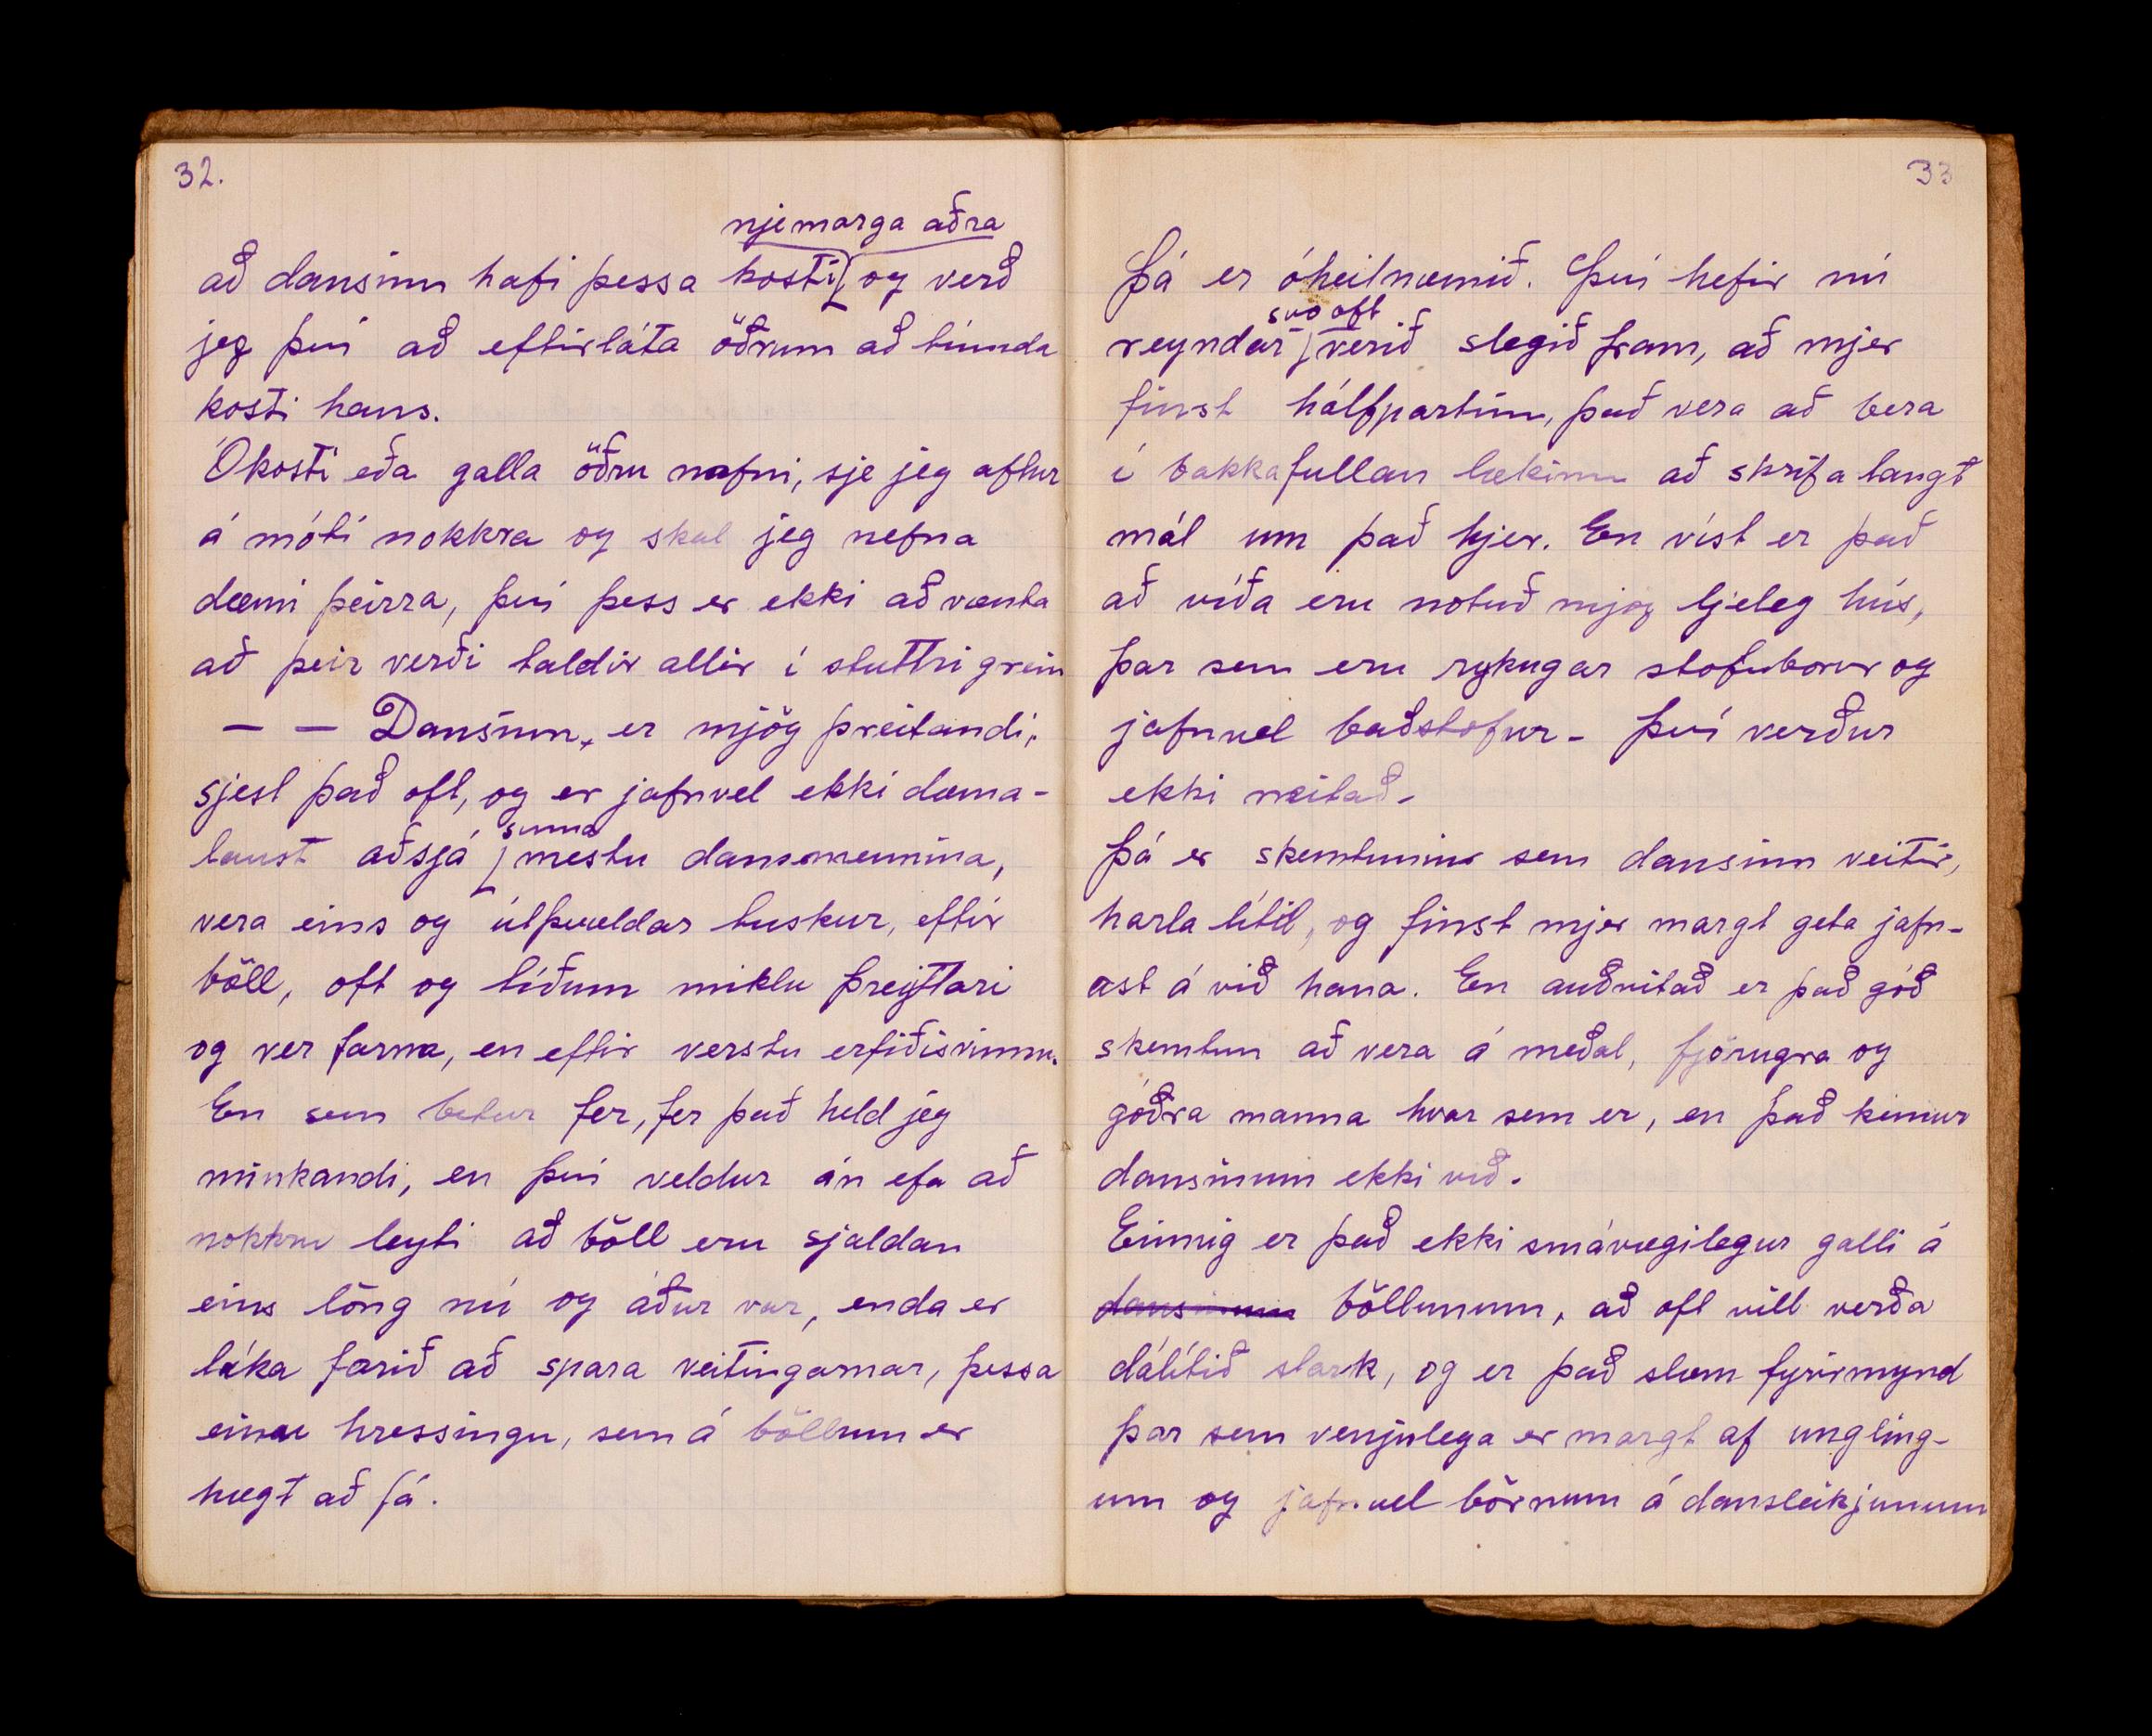 32.
njemarga aðra
að dansinn hafi þessa kosti, og verð
jeg því að eftirláta öðrum að tíunda
kosti hans.
Ókosti eða galla öðru nafni, sje jeg aftur
á móti nokkra og skal jeg nefna
dæmi þeirra, því þess er ekki að vænta
að þeir verði taldir allir í stuttri grein
— — Dansinn, er mjög þreitandi,
sjest það oft, og er jafnvel ekki dæma-
suma
laust að sjá mestu dansmennina,
vera eins og útþvældar tuskur, eftir
böll, oft og tíðum miklu þreyttari
og ver farna, en eftir verstu erfiðisvinnu.
En sem betur fer, fer það held jeg
minkandi, en því veldur án efa að
nokkru leyti að böll eru sjaldan
eins löng nú og áður var, enda er
líka farið að spara veitingarnar, þessa
einu hressingu, sem á böllum er
hægt að fá.
33
Þá er óheilnæmið. Því hefir nú
svo oft
reyndar verið slegið fram, að mjer
finst hálfpartinn, það vera að bera
í bakkafullan lækinn að skrifa langt
mál um það hjer. En víst er það
að víða eru notuð mjög ljeleg hús,
þar sem eru rykugar stofuborur og
jafnvel baðstofur - því verður
ekki neitað.
Þá er skemtunin sem dansinn veitir,
harla lítil, og finst mjer margt geta jafn-
ast á við hana. En auðvitað er það góð
skemtun að vera á meðal, fjörugra og
góðra manna hvar sem er, en það kemur
dansinum ekki við.
Einnig er það ekki smávægilegur galli á
dansinum böllunum, að oft vill verða
dálítið slark, og er það slæm fyrirmynd
þar sem venjulega er margt af ungling-
um og jafnvel börnum á dansleikjunum